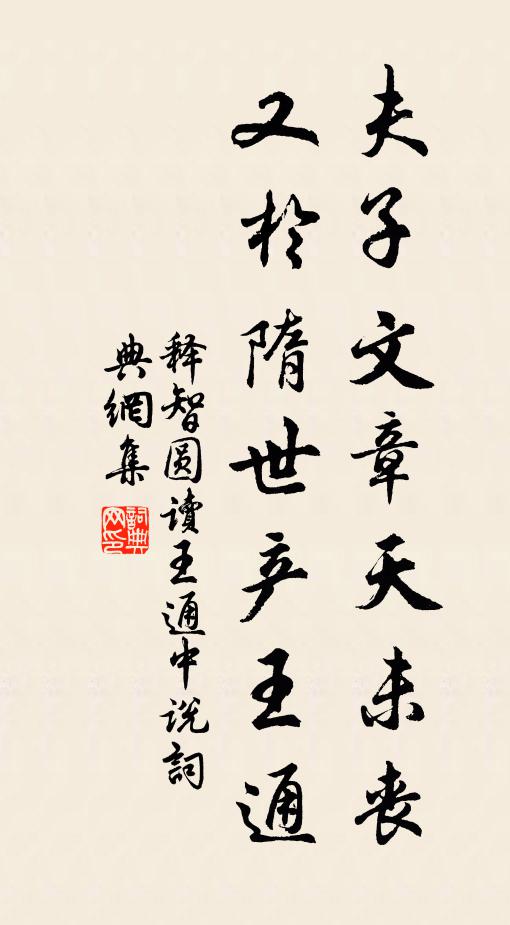 夫子文章天未丧
又於隋世产王通
释智圆读王通中说詞
典網集
詞典网印